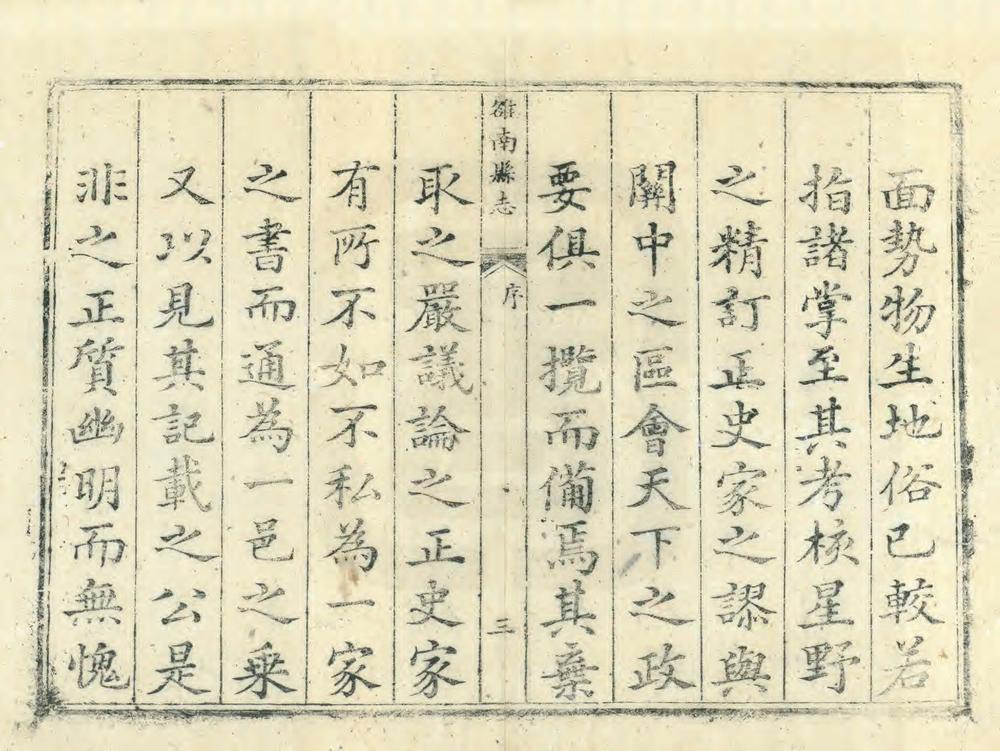 面勢物生地俗已較若
指諸掌至其考核星野
之精訂正史家之謬與
關中之區會天下之政
要俱一攬而備焉其棄
雒南縣志
序
三
取之嚴議論之正史家
有所不如不私為一家
之書而通為一邑之乘
又以見其記載之公是
非之正質幽明而無愧